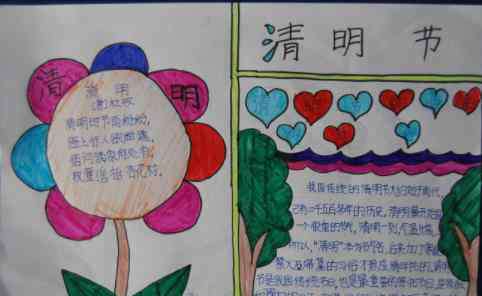 清 明
清 明
(唐)杜牧
清明时节雨纷纷,
路上行人欲断魂。
借问酒家何处有,
牧童遥指杏花村。
清 明 节
我国传统的清明节大约始于周代,
已有二千五百多年的历史。清明最开始是
一个很重要的节气,清明一到,气温升高,
所以,“清明
节是我国传统节日,也是最重要的祭祀节日,是